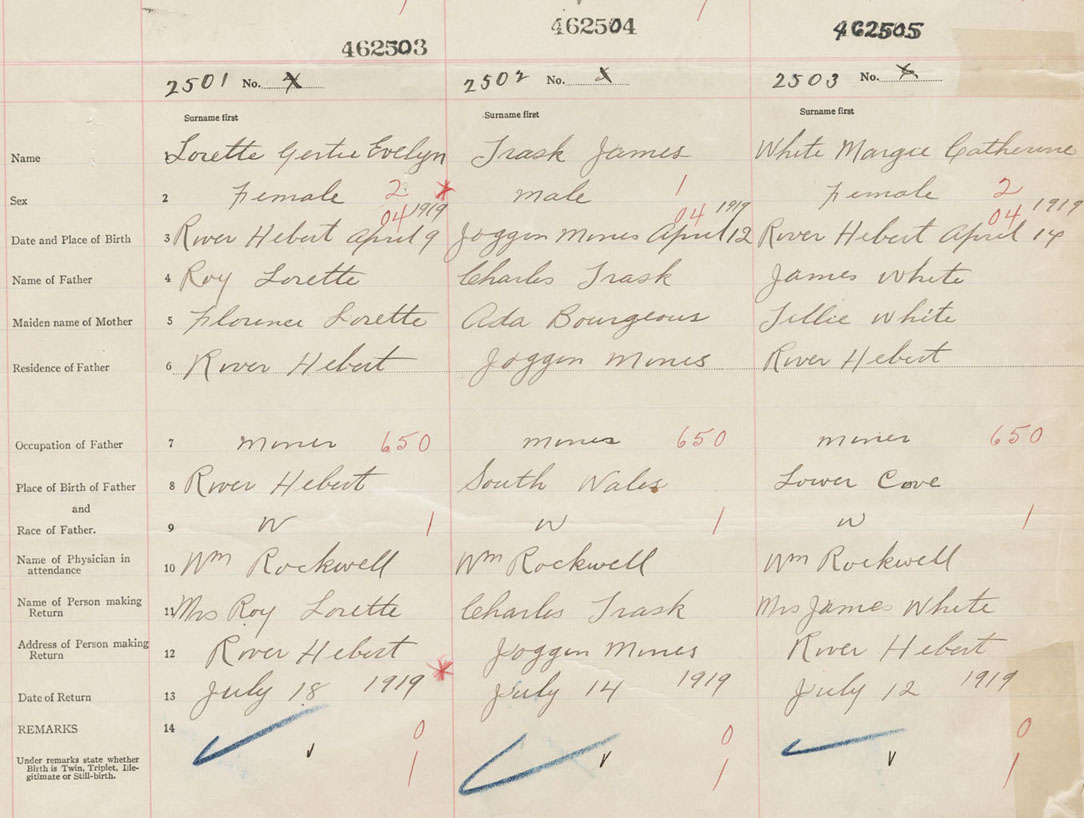 462503 462504 462505
2501 No. X 2502 No. X 2503 No. X
Surname first Surname first Surname first
Name Lorette Gertie Evelyn Trask James White Margie Catherine
Sex 2 Female 2 male 1 Female 2
04 1919 04 1919 04 1919
Date and Place of Birth 3 River Hebert April 9 Joggin Mines April 12 River Hebert April 14
Name of Father 4 Roy Lorette Charles Trask James White
Maiden name of Mother 5 Florence Lorette Ada Bourgeous Tillie White
Residence of Father 6 River Hebert Joggin Mines River Hebert
Occupation of Father 7 miner 650 mines 650 miner 650
Place of Birth of Father 8 River Hebert South Wales Lower Cove
and
Race of Father. 9 W 1 W 1 W 1
Name of Physician in
attendance 10 Wm Rockwell Wm Rockwell Wm Rockwell
Name of Person making
Return 11 Mrs Roy Lorette Charles Trask Mrs James White
Address of Person making
Return 12 River Hebert Joggin Mines River Hebert
Date of Return 13 July 18 1919 July 14 1919 July 12 1919
REMARKS 14 0 0 0
Under remarks state whether
Birth is Twin, Triplet, Ille-
gitimate or Still-birth. 1 1 1